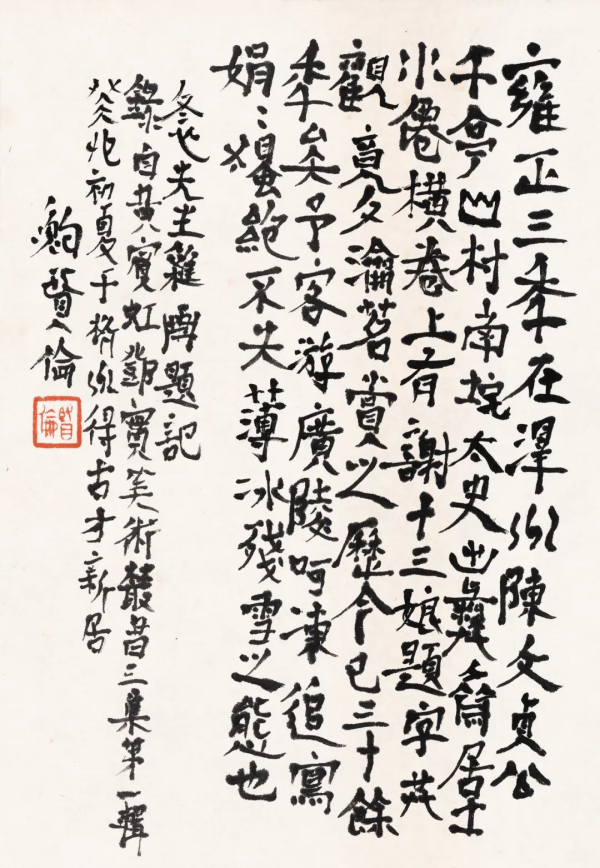 雍正三年在澤州陳文貞公
午亭山村南垞太史出彝齋居士
水僊橫卷上有謝十三娘題字共
觀竟夕瀹茗賞之歷今已三十餘
年矣予客游廣陵呵凍追寫
娟〻獨絕不失薄冰殘雪之態也
冬心先生雜畫題記
錄自黃賓虹鄧實美術叢書三集第一輯
初夏于州得古才新居
倫